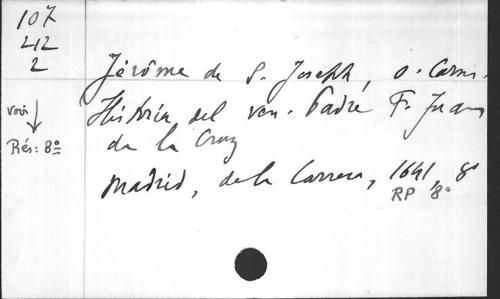 107
212
2
Jérôme de S. Joseph, o. Carm.
voir
Historia del ven. Padre F. Juan
Rés: 8º
de la Cruz
Madrid, de la Carrera, 1641, 8º
RP 8º